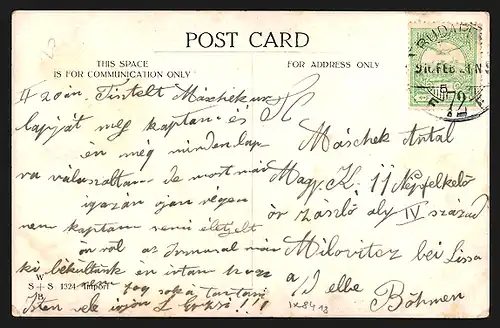 POST CARD
THIS SPACE
IS FOR COMMUNICATION ONLY
FOR ADDRESS ONLY
BUDAPEST
916 FEB
72
II 20án. Tistelt Máschek ur
lapját meg kaptam és
én még minden lap
ra válaszoltam. de most már
igazán gan régen
nem kaptam semi életjelt
ön ról az már
ki békultünk én irtam
fog soká tartani
Isten vele irjön
Máschek Antal
Magy. K. 11 Népfelkelő
őr zászló aly IV század
Milovitcz bei Lissa
a/d elbe
Böhmen
W
S + S 1324 Import
B